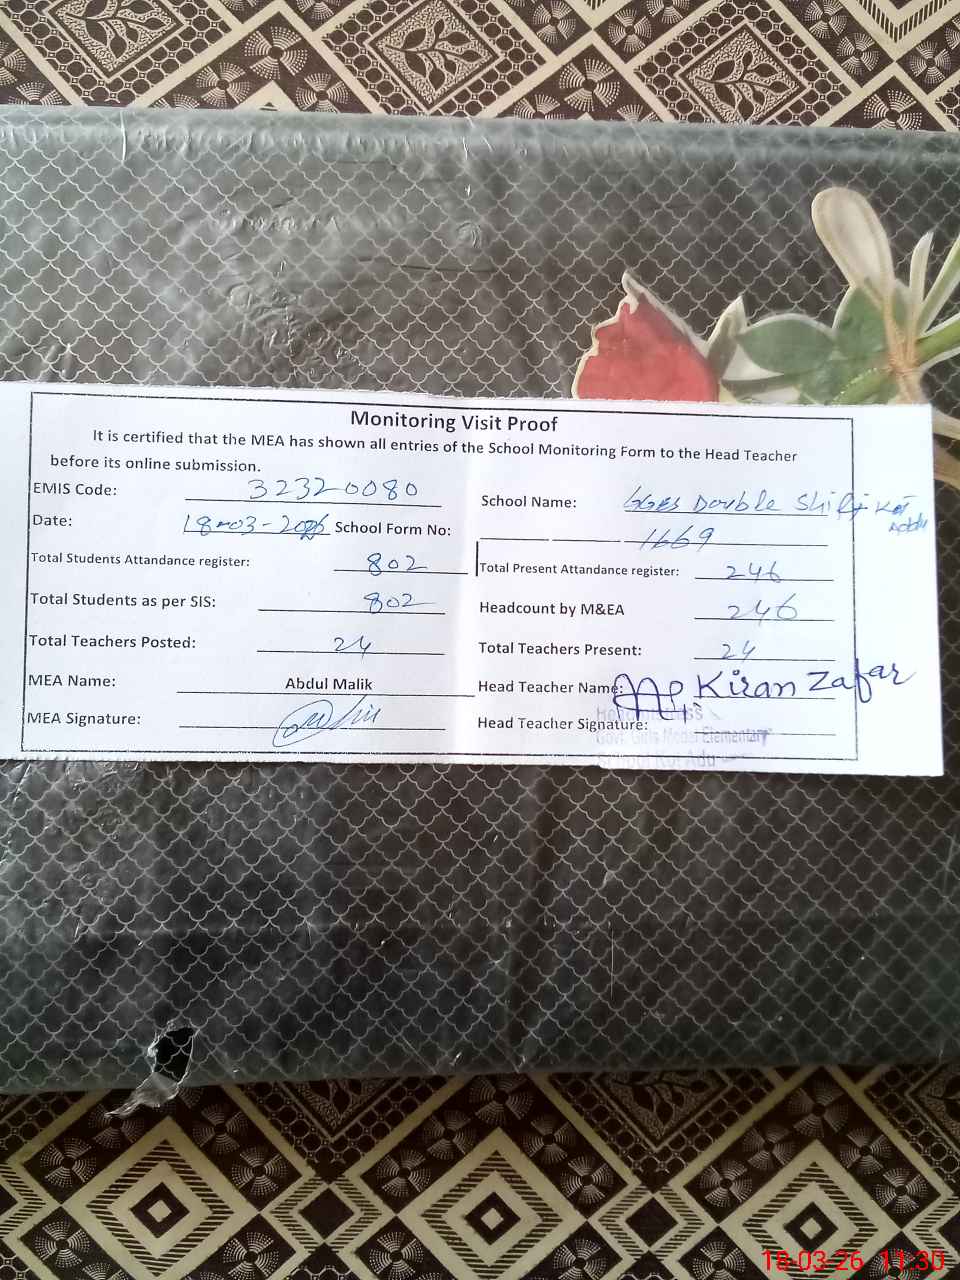 Monitoring Visit Proof
It is certified that the MEA has shown all entries of the School Monitoring Form to the Head Teacher
before its online submission.
EMIS Code: 32320080
School Name: GGES Double Shift Kot Addu
Date: 18-03-2026 School Form No: 1669
Total Students Attandance register: 802
Total Present Attandance register: 246
Total Students as per SIS: 802
Headcount by M&EA 246
Total Teachers Posted: 24
Total Teachers Present: 24
MEA Name: Abdul Malik
Head Teacher Name: Kiran Zafar
MEA Signature:
Head Teacher Signature:
Headmistress
Govt. Girls Model Elementary
School Kot Adu
18-03-26 11:30